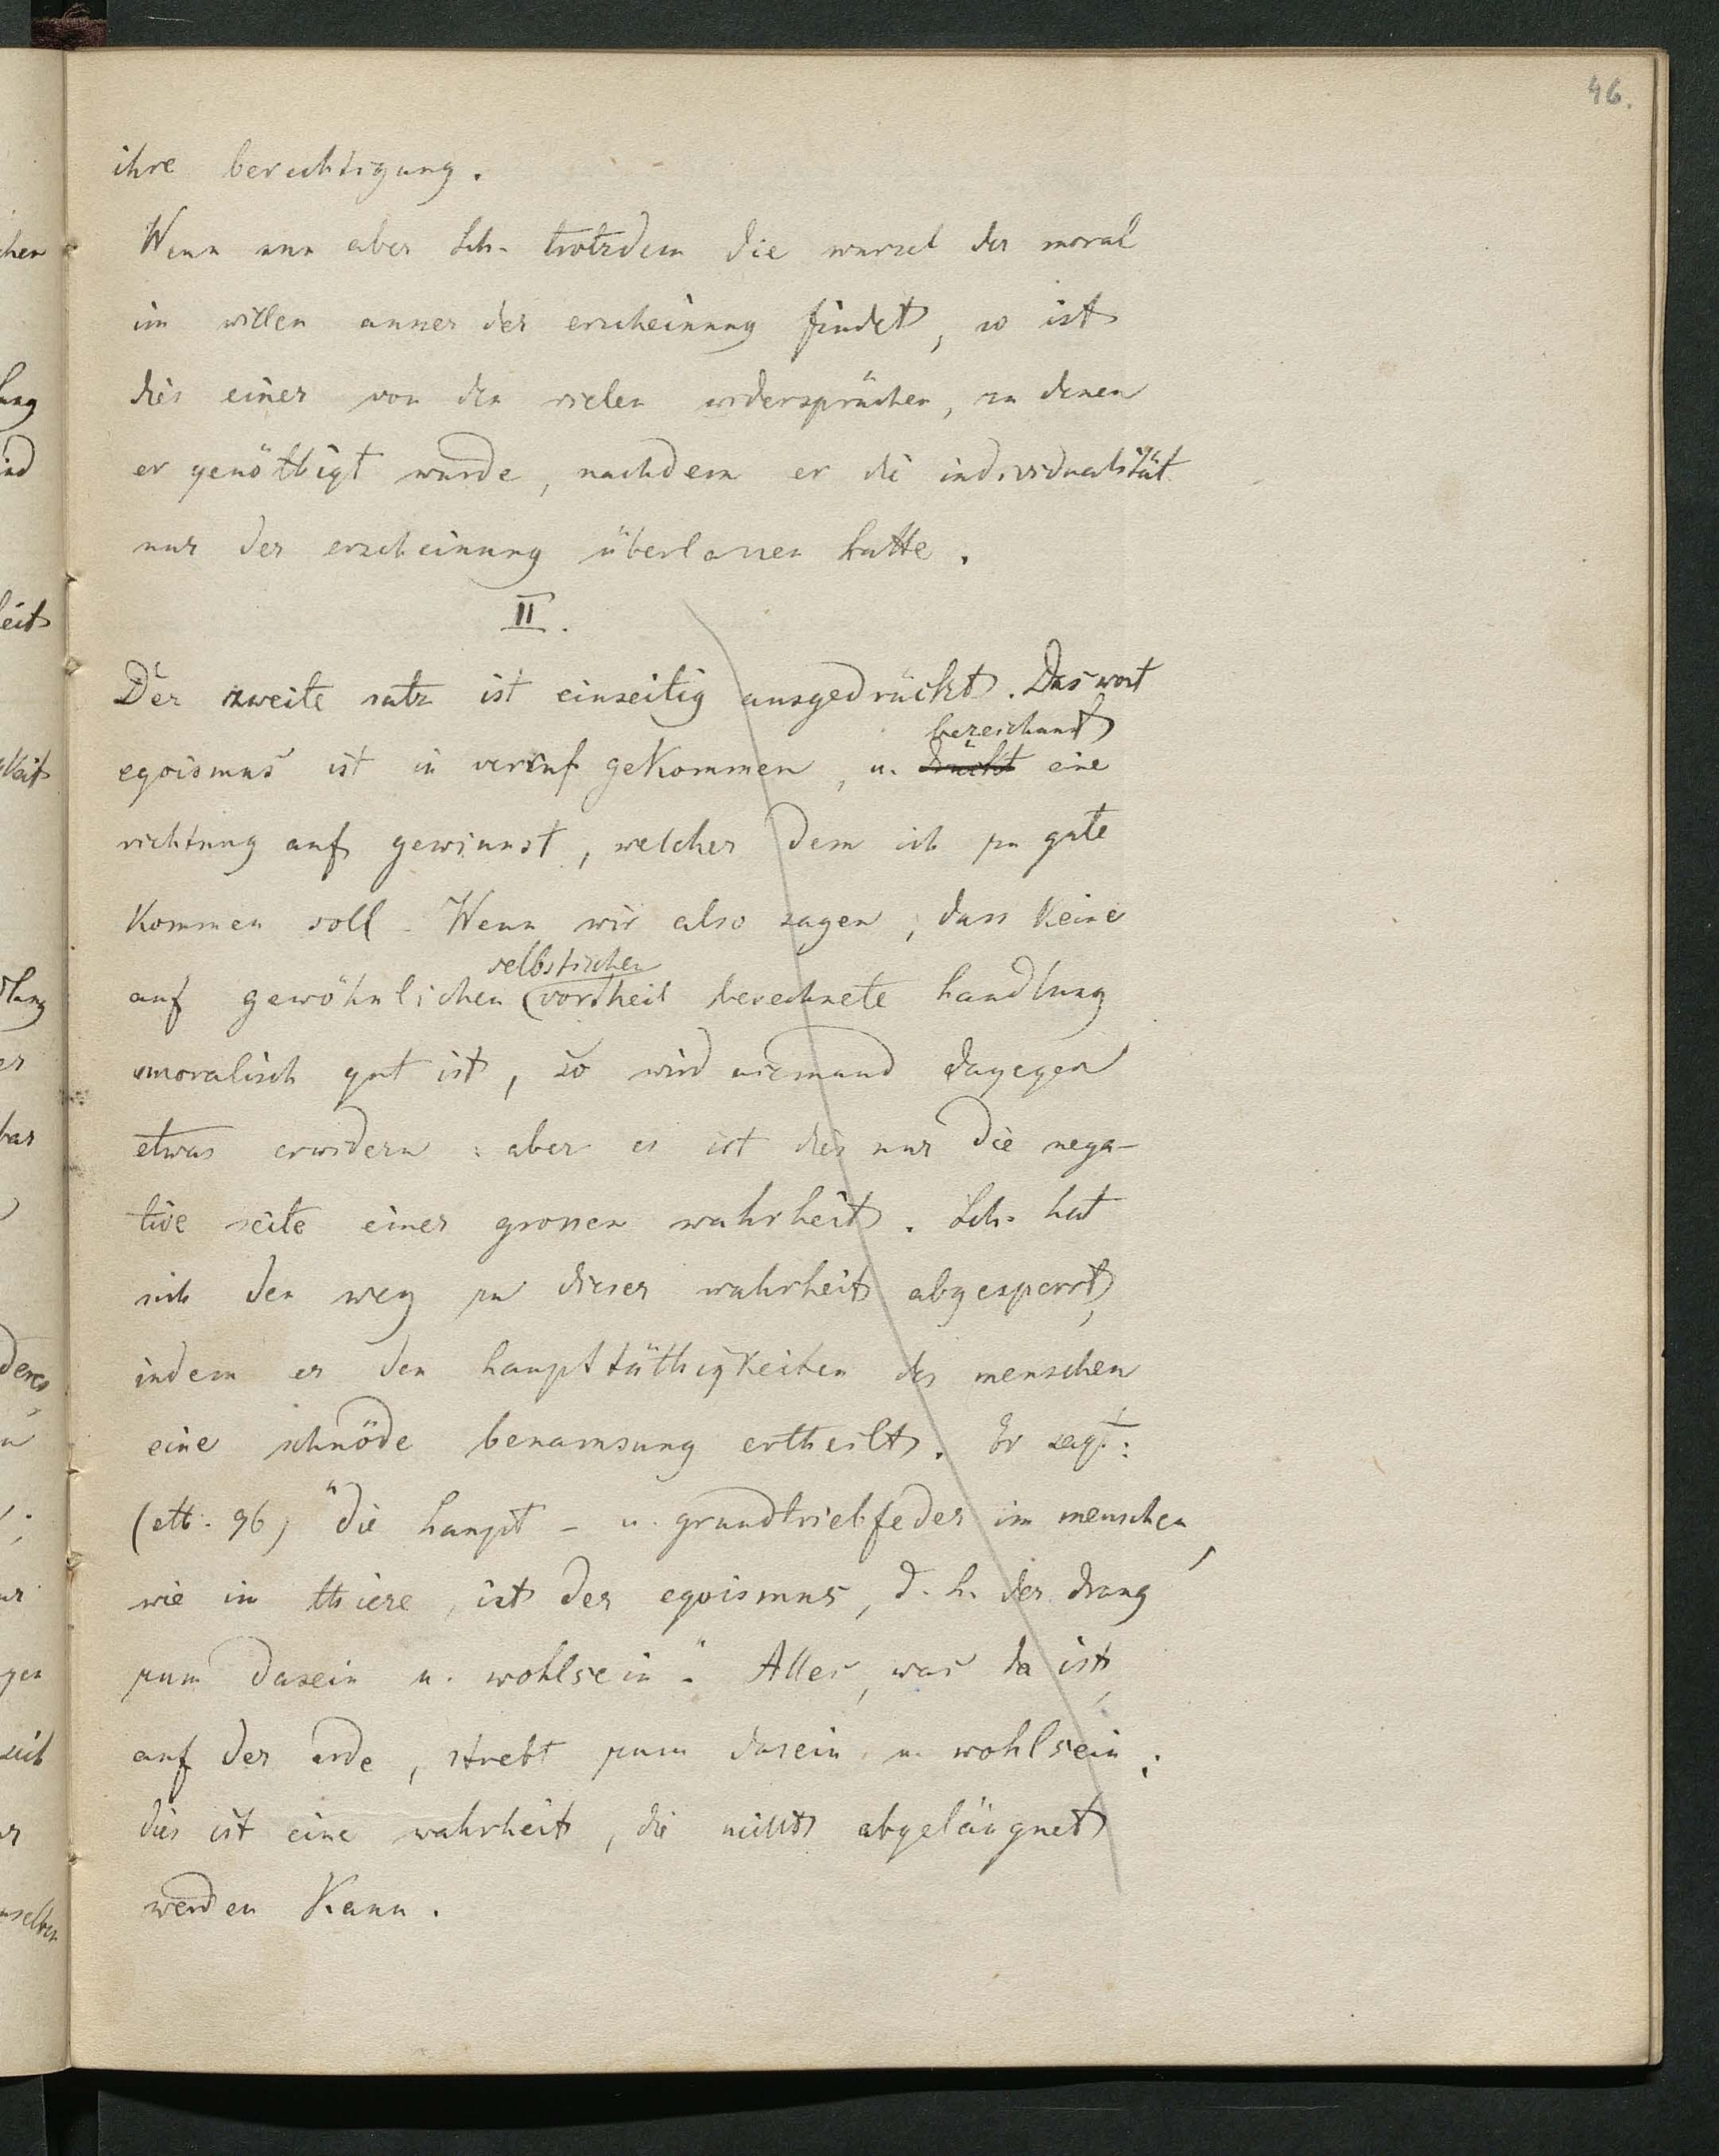 46.
ihre berechtigung.
Wenn nun aber Sch. trotzdem die wurzel der moral
im willen ausser der erscheinung findet, so ist
dies einer von den vielen widersprüchen, zu denen
er genöthigt wurde, nachdem er die individualität
nur der erscheinung überlassen hatte.
II.
Der zweite satz ist einseitig ausgedrückt. Das wort
bezeichnet
egoismus ist in verruf gekommen, u. drückt eine
richtung auf gewinnst, welcher dem ich zu gute
kommen soll. Wenn wir also sagen, dass keine
selbstischen
auf gewöhnlichen (vortheil berechnete handlung
moralisch gut ist, so wird niemand dagegen
etwas erwidern: aber es ist dies nur die nega-
tive seite einer grossen wahrheit. Sch. hat
sich den weg zu dieser wahrheit abgesperrt,
indem er den hauptthätigkeiten des menschen
eine schnöde benamsung ertheilt. Er sagt:
(eth. 96) "die haupt- u. grundtriebfeder im menschen,
wie im thiere, ist der egoismus, d. h. der drang
zum dasein u. wohlsein". Alles, was da ist,
auf der erde, strebt zum dasein u. wohlsein;
dies ist eine wahrheit, die nicht abgeläugnet
werden kann.